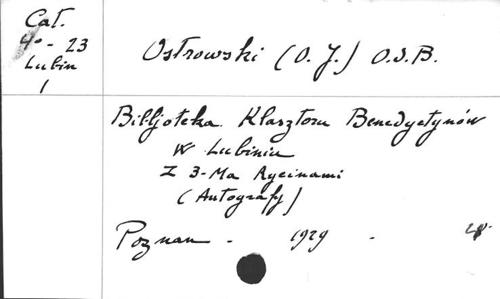 Cat.
4° - 23
Lubin
1
Ostrowski (O. J.) O.S.B.
Bibljoteka Klasztoru Benedyctynów
w Lubiniu
Z 3-Ma Rycinami
(Autografy)
Poznan - 1929 - 4°.